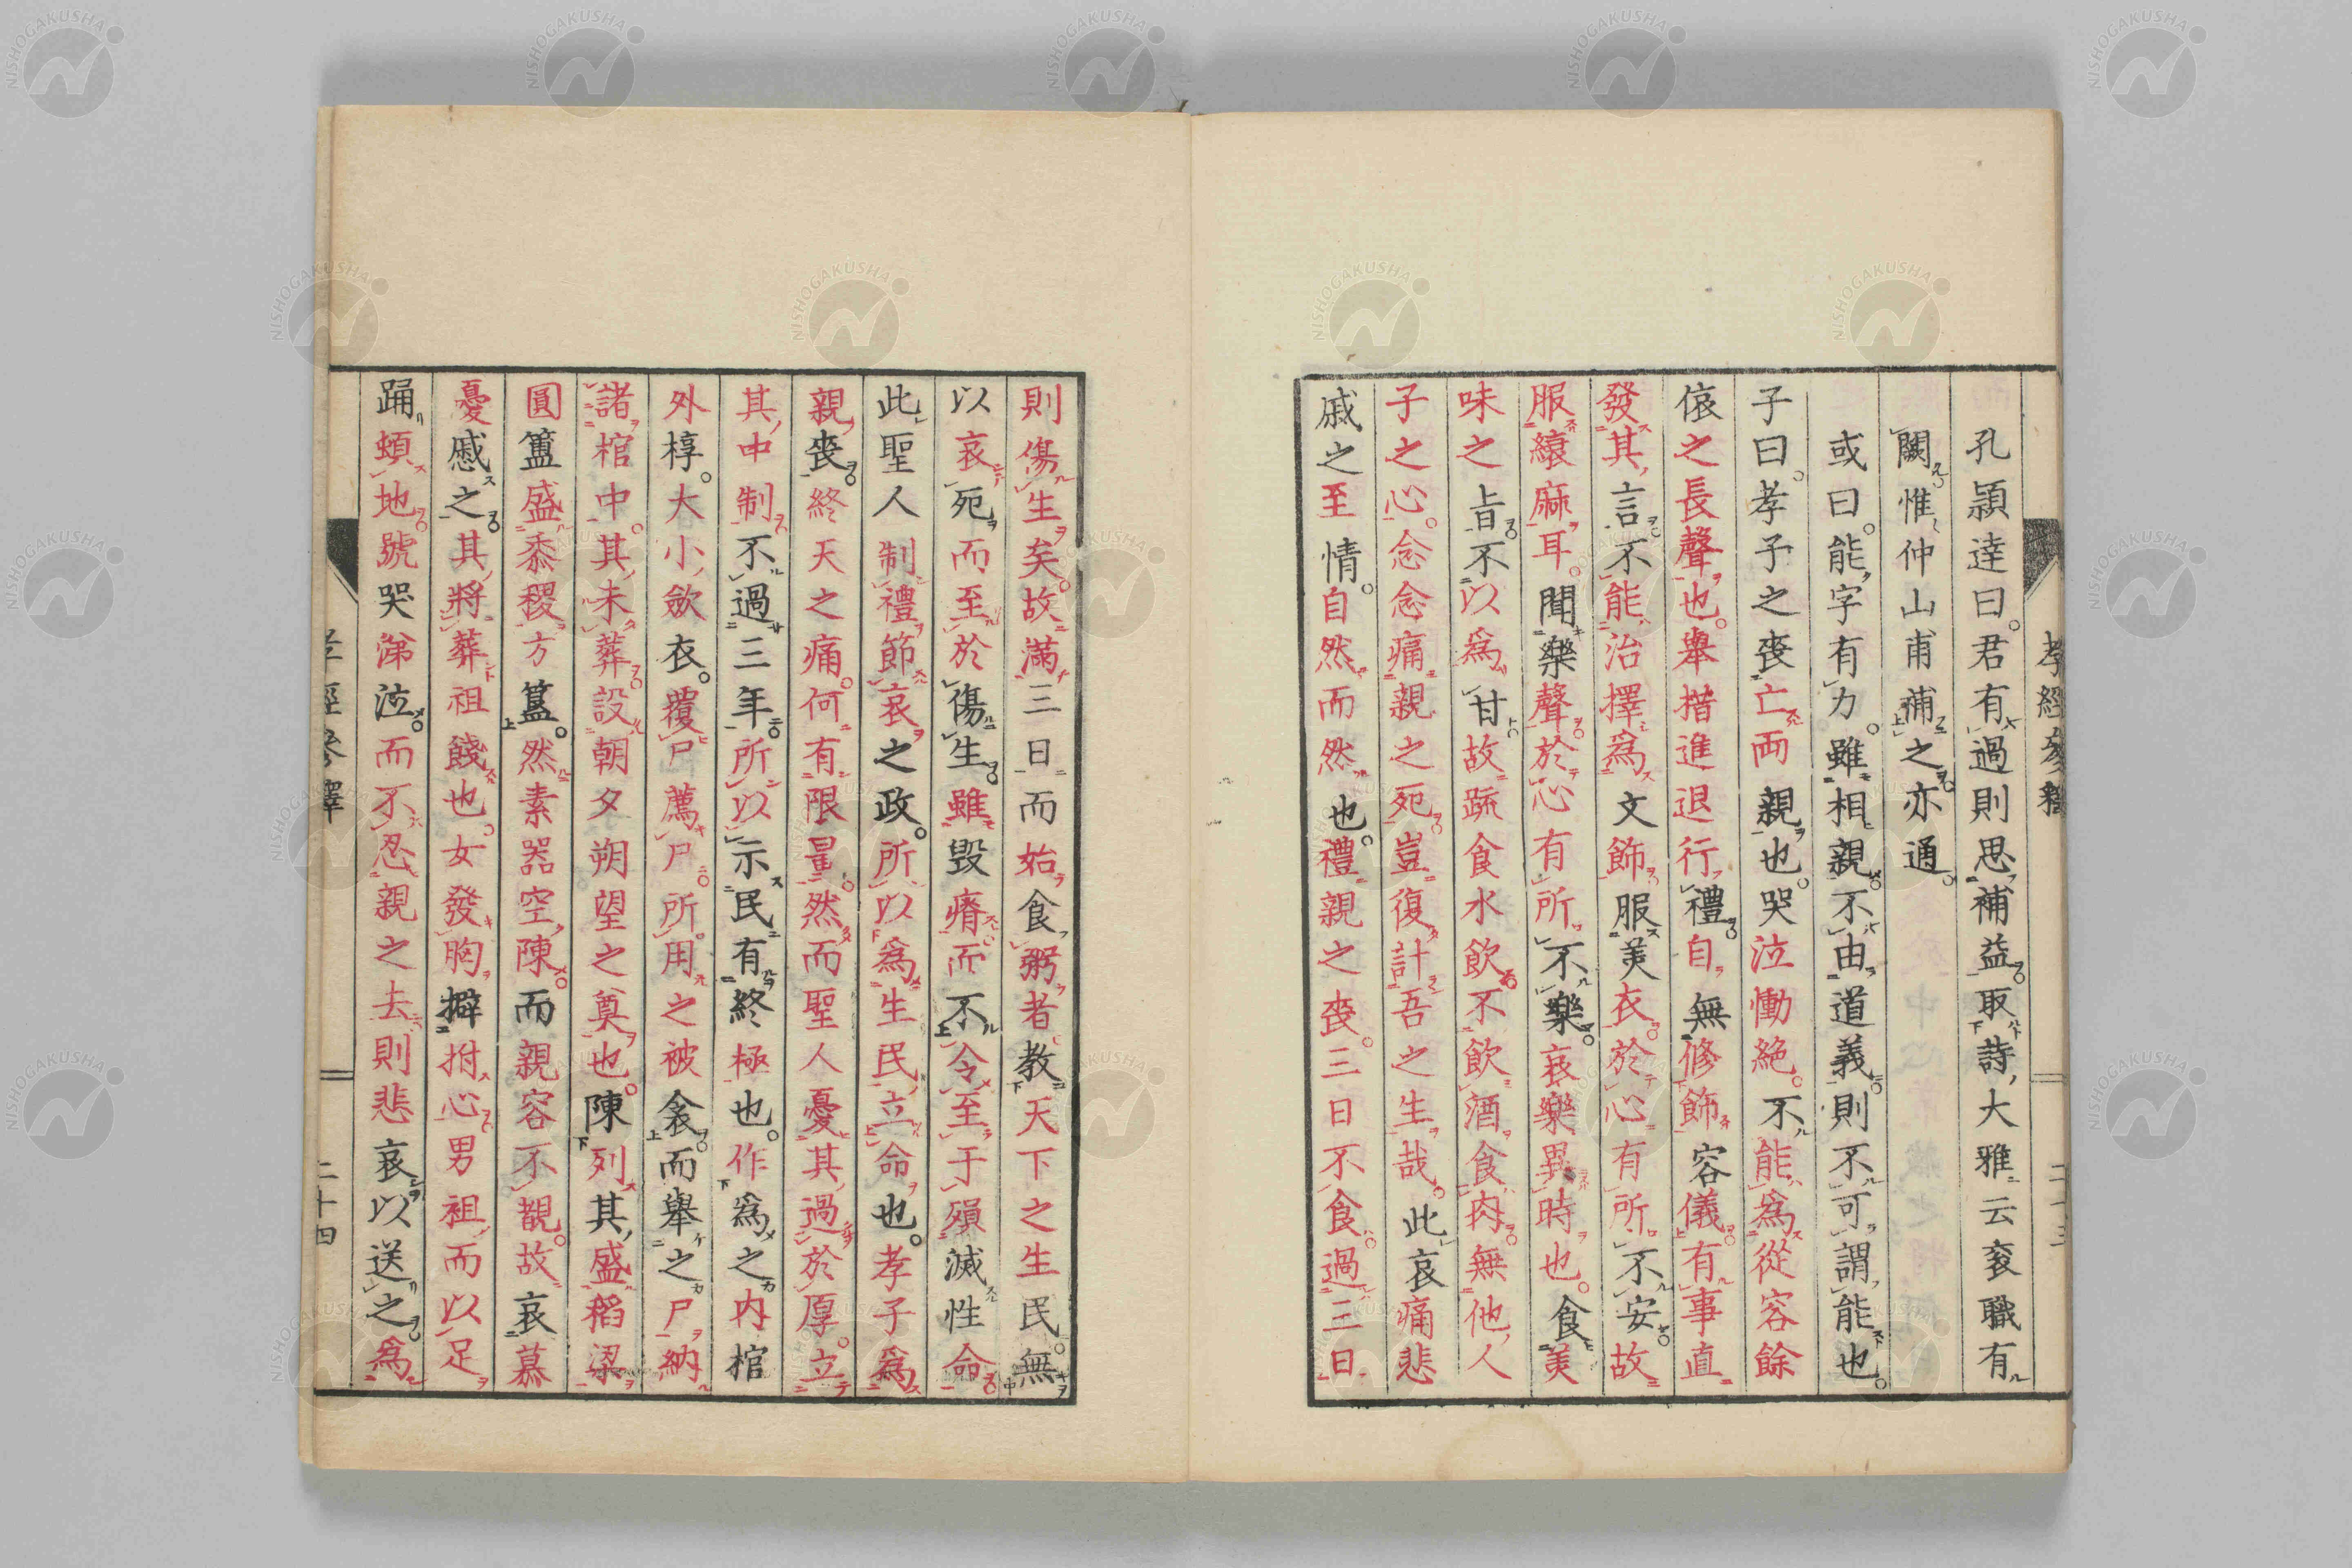 孔頴達曰。君有過則思補益。取詩大雅云袞職有
闕。惟仲山甫補之。亦通。
或曰。能字有力。雖相親。不由道義。則不可謂能也。
子曰。孝子之喪亡両親也。哭泣慟絶。不能為從容餘
偯之長聲也。舉措進退行禮。自無修飾容儀。有事直
發其言。不能治擇為文飾。服美衣。於心有所不安。故
服縗麻耳。聞樂聲。於心有所不樂。哀樂異時也。食美
味之旨。不以為甘。故疏食水飲。不飲酒食肉。無他人
子之心。念念痛親之死。豈復計吾之生哉。此哀痛悲
戚之至情。自然而然也。禮親之喪。三日不食。過三日
則傷生矣。故滿三日而始食粥者。教天下之生民無
以哀死而至於傷生。雖毀瘠而不令至于殞滅性命。
此聖人制禮節哀之政。所以為生民立命也。孝子為
親喪。終天之痛。何有限量。然而聖人憂其過於厚。立
其中制。不過三年。所以示民有終極也。作為之内棺
外椁。大小歛衣。覆尸薦尸所用之被衾。而舉之尸納
諸棺中。其未葬。設朝夕朔望之奠也。陳列其盛稻粱
圓簠盛黍稷方簋。然素器空陳。而親容不覩。故哀慕
憂慼之。其將葬祖餞也。女發胸擗拊心。男袒而以足
踊蝢地。號哭涕泣。而不忍親之去。則悲哀以送之。為
孝經參釋
二十四